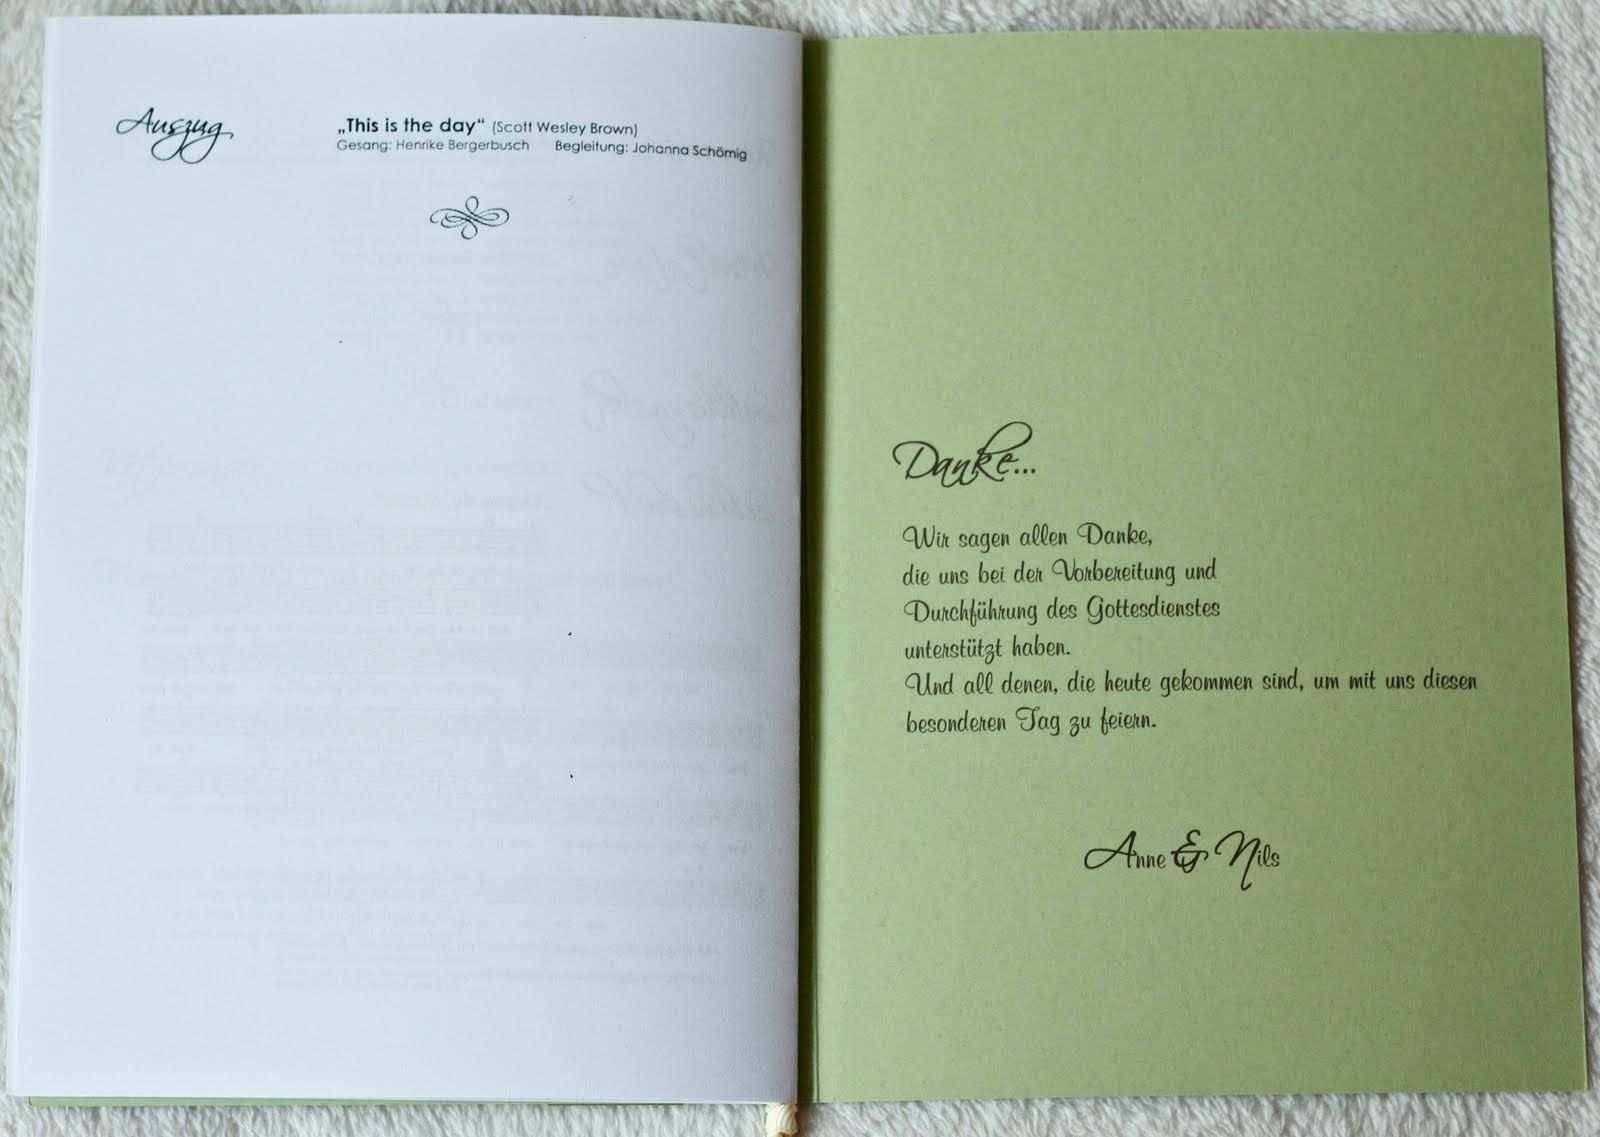 Auszug
„This is the day“ (Scott Wesley Brown)
Gesang: Henrike Bergerbusch Begleitung: Johanna Schömig
Danke...
Wir sagen allen Danke,
die uns bei der Vorbereitung und
Durchführung des Gottesdienstes
unterstützt haben.
Und all denen, die heute gekommen sind, um mit uns diesen
besonderen Tag zu feiern.
Anne & Nils